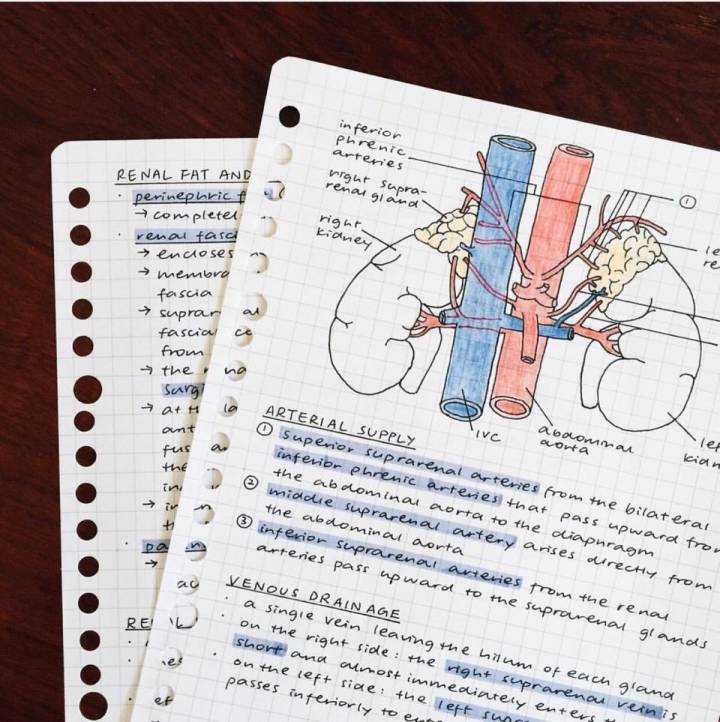 RENAL FAT AND
· perinephric f
→ completel
· renal fasc
→ encloses
→ membra
fascia
→ suprar
fascia
from
→ the
surg
→ at th
ant
fus
the
→ in
inferior
phrenic
arteries
right supra-
renal gland
right
kidney
①
IVC
abdominal
aorta
ARTERIAL SUPPLY
① superior suprarenal arteries from the bilateral
inferior phrenic arteries that pass upward from
the abdominal aorta to the diaphragm
② middle suprarenal artery arises directly from
the abdominal aorta
③ inferior suprarenal arteries from the renal
arteries pass upward to the suprarenal glands
VENOUS DRAINAGE
· a single vein leaving the hilum of each gland
· on the right side: the right suprarenal vein is
short and almost immediately enters
· on the left side: the left
passes inferiorly to